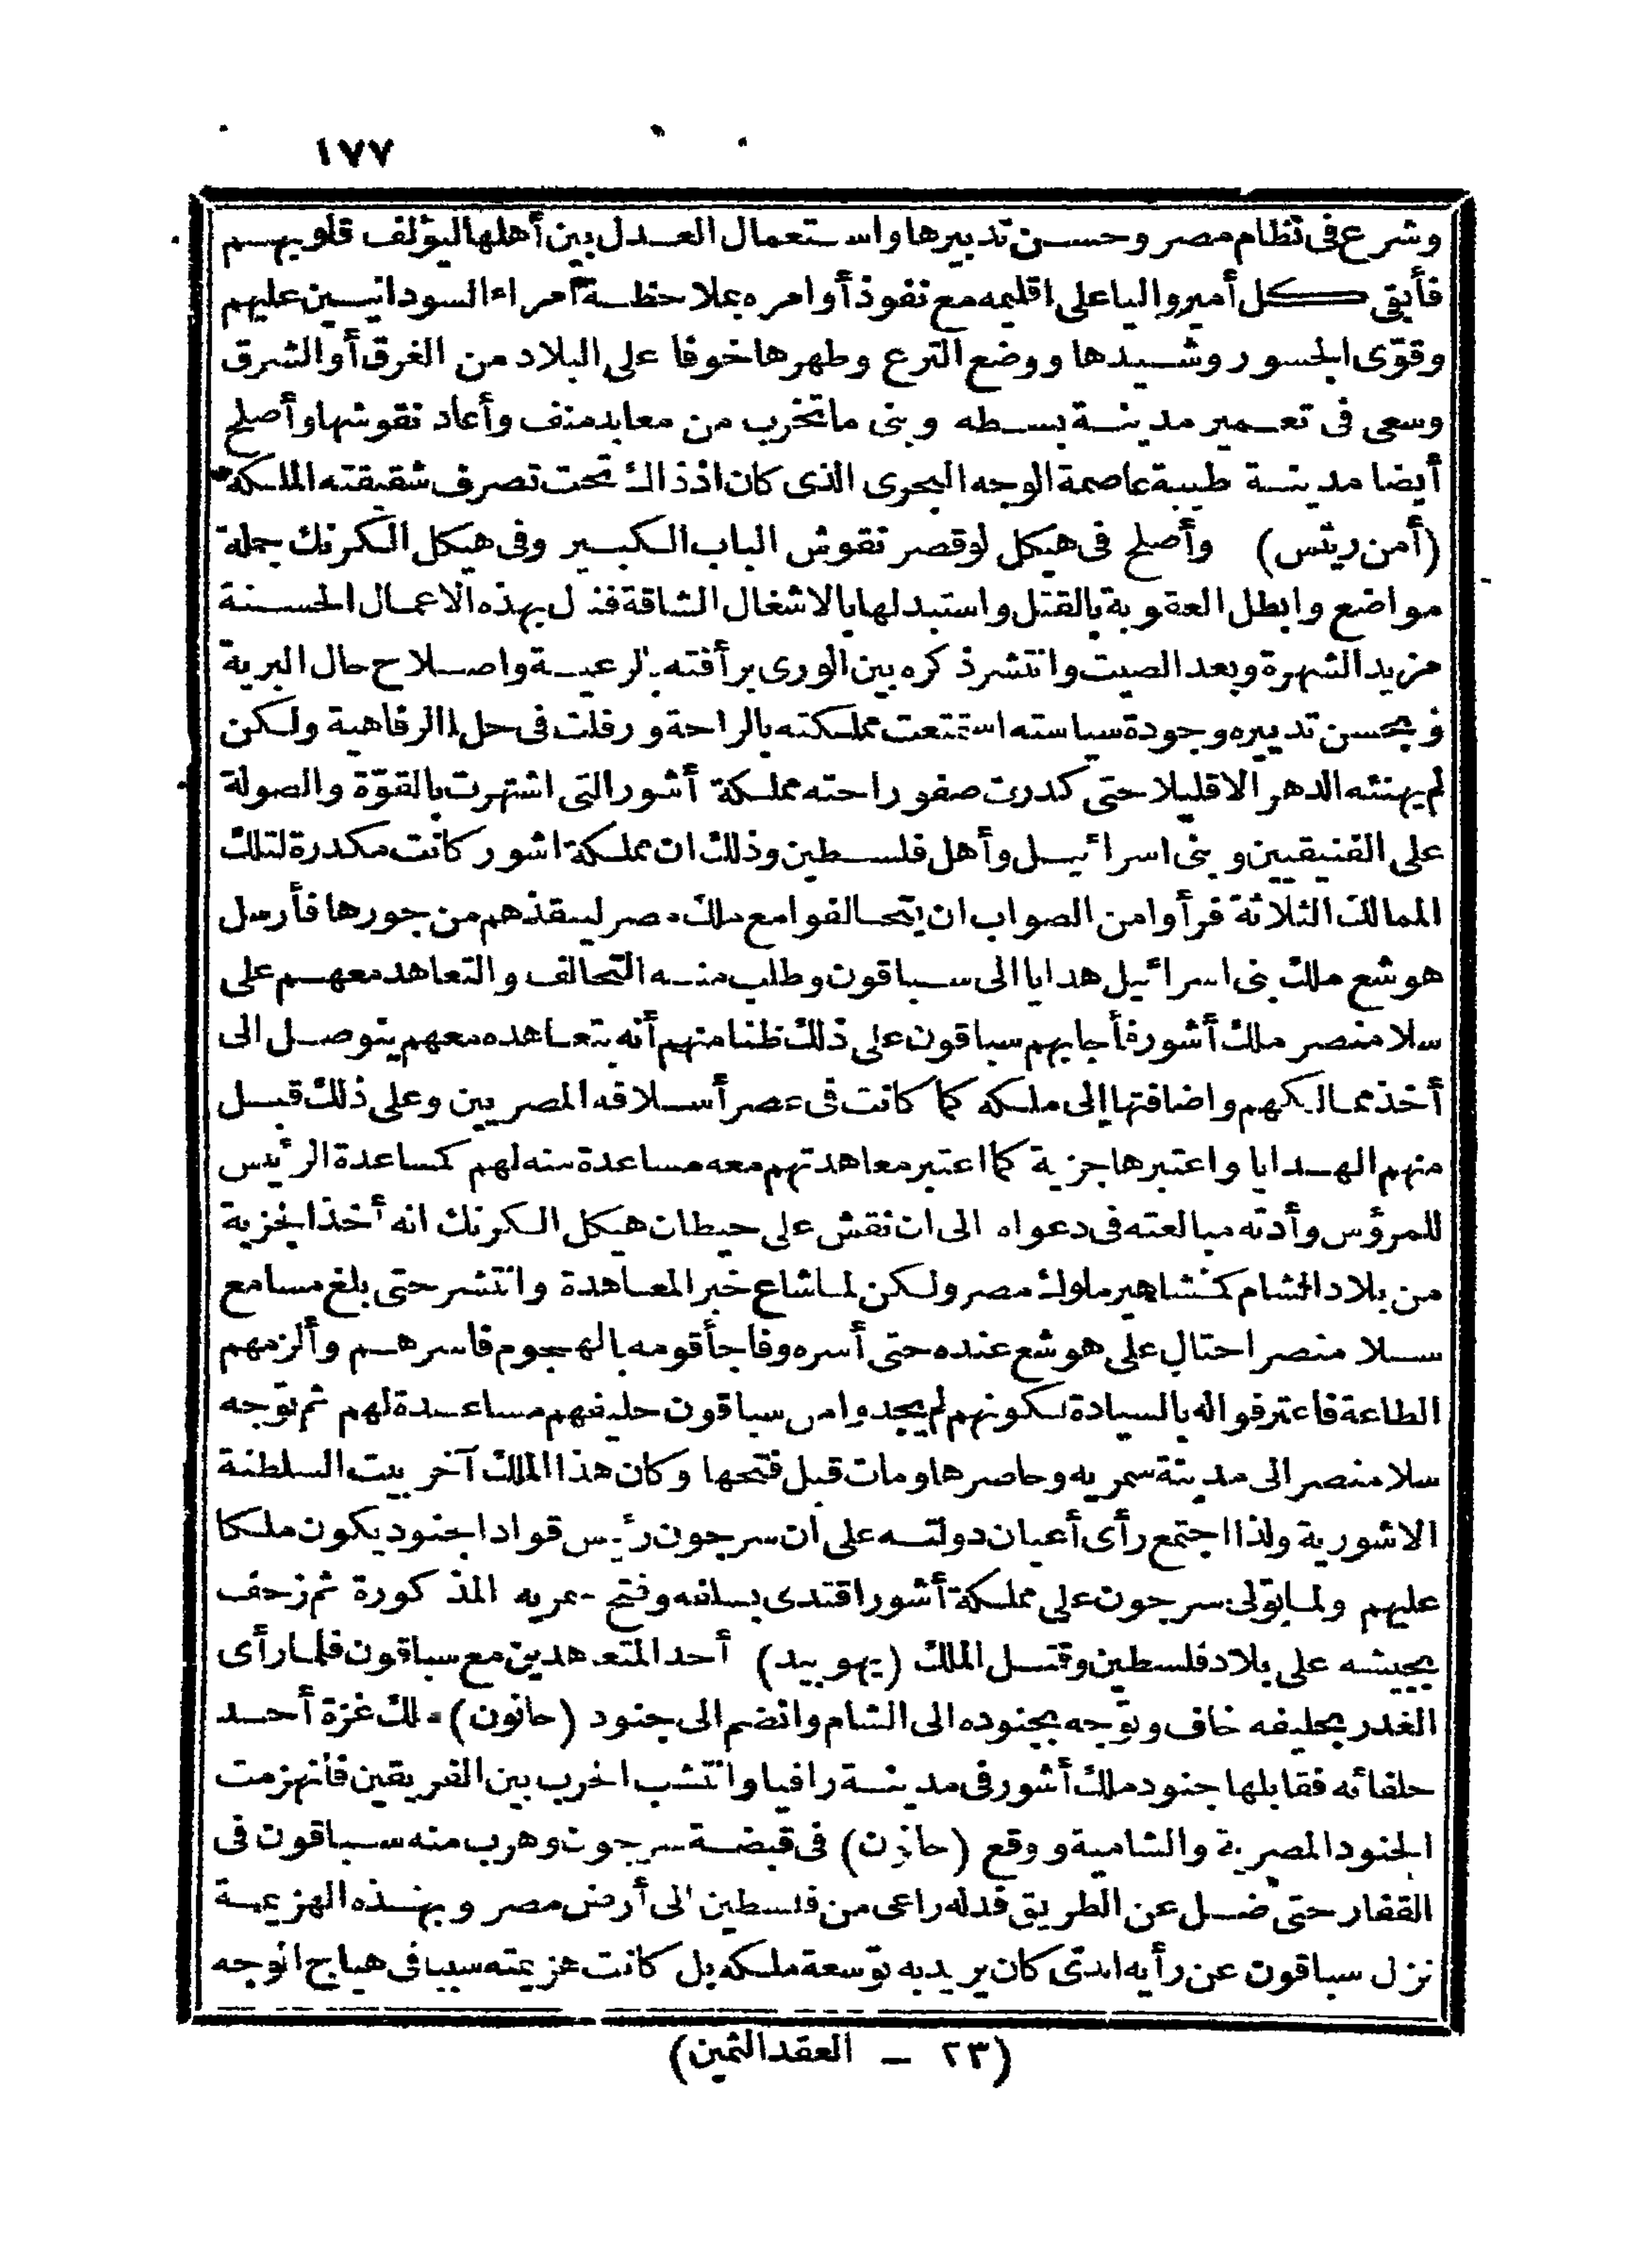 ١٧٧
وشرع فى نظام مصر وحسن تدبيرها واستعمال العدل بين أهلها ليؤلف قلوبهم
فأبقى كل أمير واليا على اقليمه مع نفوذ أوامره بملاحظة أمراء السودانيين عليهم
وقوّى الجسور وشيدها ووضع الترع وطهرها خوفا على البلاد من الغرق أو الشرق
وسعى فى تعمير مدينة بسطه وبنى ما تخرب من معابد منف وأعاد نقوشها وأصلح
أيضا مدينة طيبة عاصمة الوجه البحرى الذى كان اذ ذاك تحت تصرف شقيقته الملكة
(أمن ريتس) وأصلح فى هيكل لوقصر نقوش الباب الكبير وفى هيكل الكرنك جملة
مواضع وابطل العقوبة بالقتل واستبدلها بالاشغال الشاقة فنال بهذه الاعمال الحسنة
مزيد الشهرة وبعد الصيت وانتشر ذكره بين الورى برأفته بالرعية واصلاح حال البرية
فبحسن تدبيره وجودة سياسته استمتعت مملكته بالراحة ورفلت فى حلل الرفاهية ولكن
لم يهنئه الدهر الا قليلا حتى كدرت صفو راحته مملكة أشور التى اشتهرت بالقوّة والصولة
على الفنيقيين وبنى اسرائيل وأهل فلسطين وذلك ان مملكة اشور كانت مكدرة لتلك
الممالك الثلاثة فرأوا من الصواب ان يتحالفوا مع ملك مصر لينقذهم من جورها فأرسل
هوشع ملك بنى اسرائيل هدايا الى سباقون وطلب منه التحالف والتعاهد معهم على
سلامنصر ملك أشور فأجابهم سباقون على ذلك ظنا منهم أنه بتعاهده معهم يتوصل الى
أخذ ممالكهم واضافتها إلى ملكه كما كانت فى عصر أسلافه المصريين وعلى ذلك قبل
منهم الهدايا واعتبرها جزية كما اعتبر معاهدتهم معه مساعدة منه لهم كمساعدة الرئيس
للمرؤس وأدته مبالغته فى دعواه الى ان نقش على حيطان هيكل الكرنك انه أخذ الجزية
من بلاد الشام كمشاهير ملوك مصر ولكن لما شاع خبر المعاهدة وانتشر حتى بلغ مسامع
سلا منصر احتال على هوشع عنده حتى أسره وفاجأ قومه بالهجوم فاسرهم وألزمهم
الطاعة فاعترفوا له بالسيادة لكونهم لم يجدوا من سباقون حليفهم مساعدة لهم ثم توجه
سلامنصر الى مدينة سمريه وحاصرها ومات قبل فتحها وكان هذا الملك آخر بيت السلطنة
الاشورية ولذا اجتمع رأى أعيان دولته على ان سرجون رئيس قواد الجنود يكون ملكا
عليهم ولما تولى سرجون على مملكة أشور اقتدى بسلفه وفتح سمريه المذكورة ثم زحف
بجيشه على بلاد فلسطين وقتل الملك (يهوبيد) أحد المتعهدين مع سباقون فلما رأى
الغدر بحليفه خاف وتوجه بجنوده الى الشام وانضم الى جنود (حانون) ملك غزة أحد
حلفائه فقابلها جنود ملك أشور فى مدينة رافيا وانتشب الحرب بين الفريقين فانهزمت
الجنود المصرية والشامية ووقع (حانون) فى قبضة سرجون وهرب منه سباقون فى
القفار حتى ضل عن الطريق فدله راعى من فلسطين الى أرض مصر وبهذه الهزيمة
نزل سباقون عن رأيه الذى كان يريد به توسعة ملكه بل كانت هزيمته سببا فى هياج الوجه
(٢٣ – العقد الثمين)